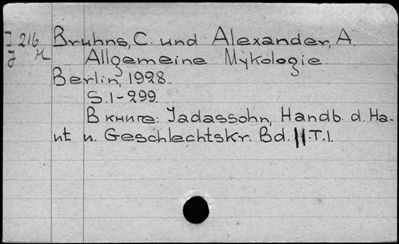 J 216 Bruhns, C. und Alexander, A.
J M Allgemeine Mykologie.
Berlin, 1928.
S.1-299.
В книге: Jadassohn, Handb. d. Ha-
ut u. Geschlechtskr. Bd. II.T.1.